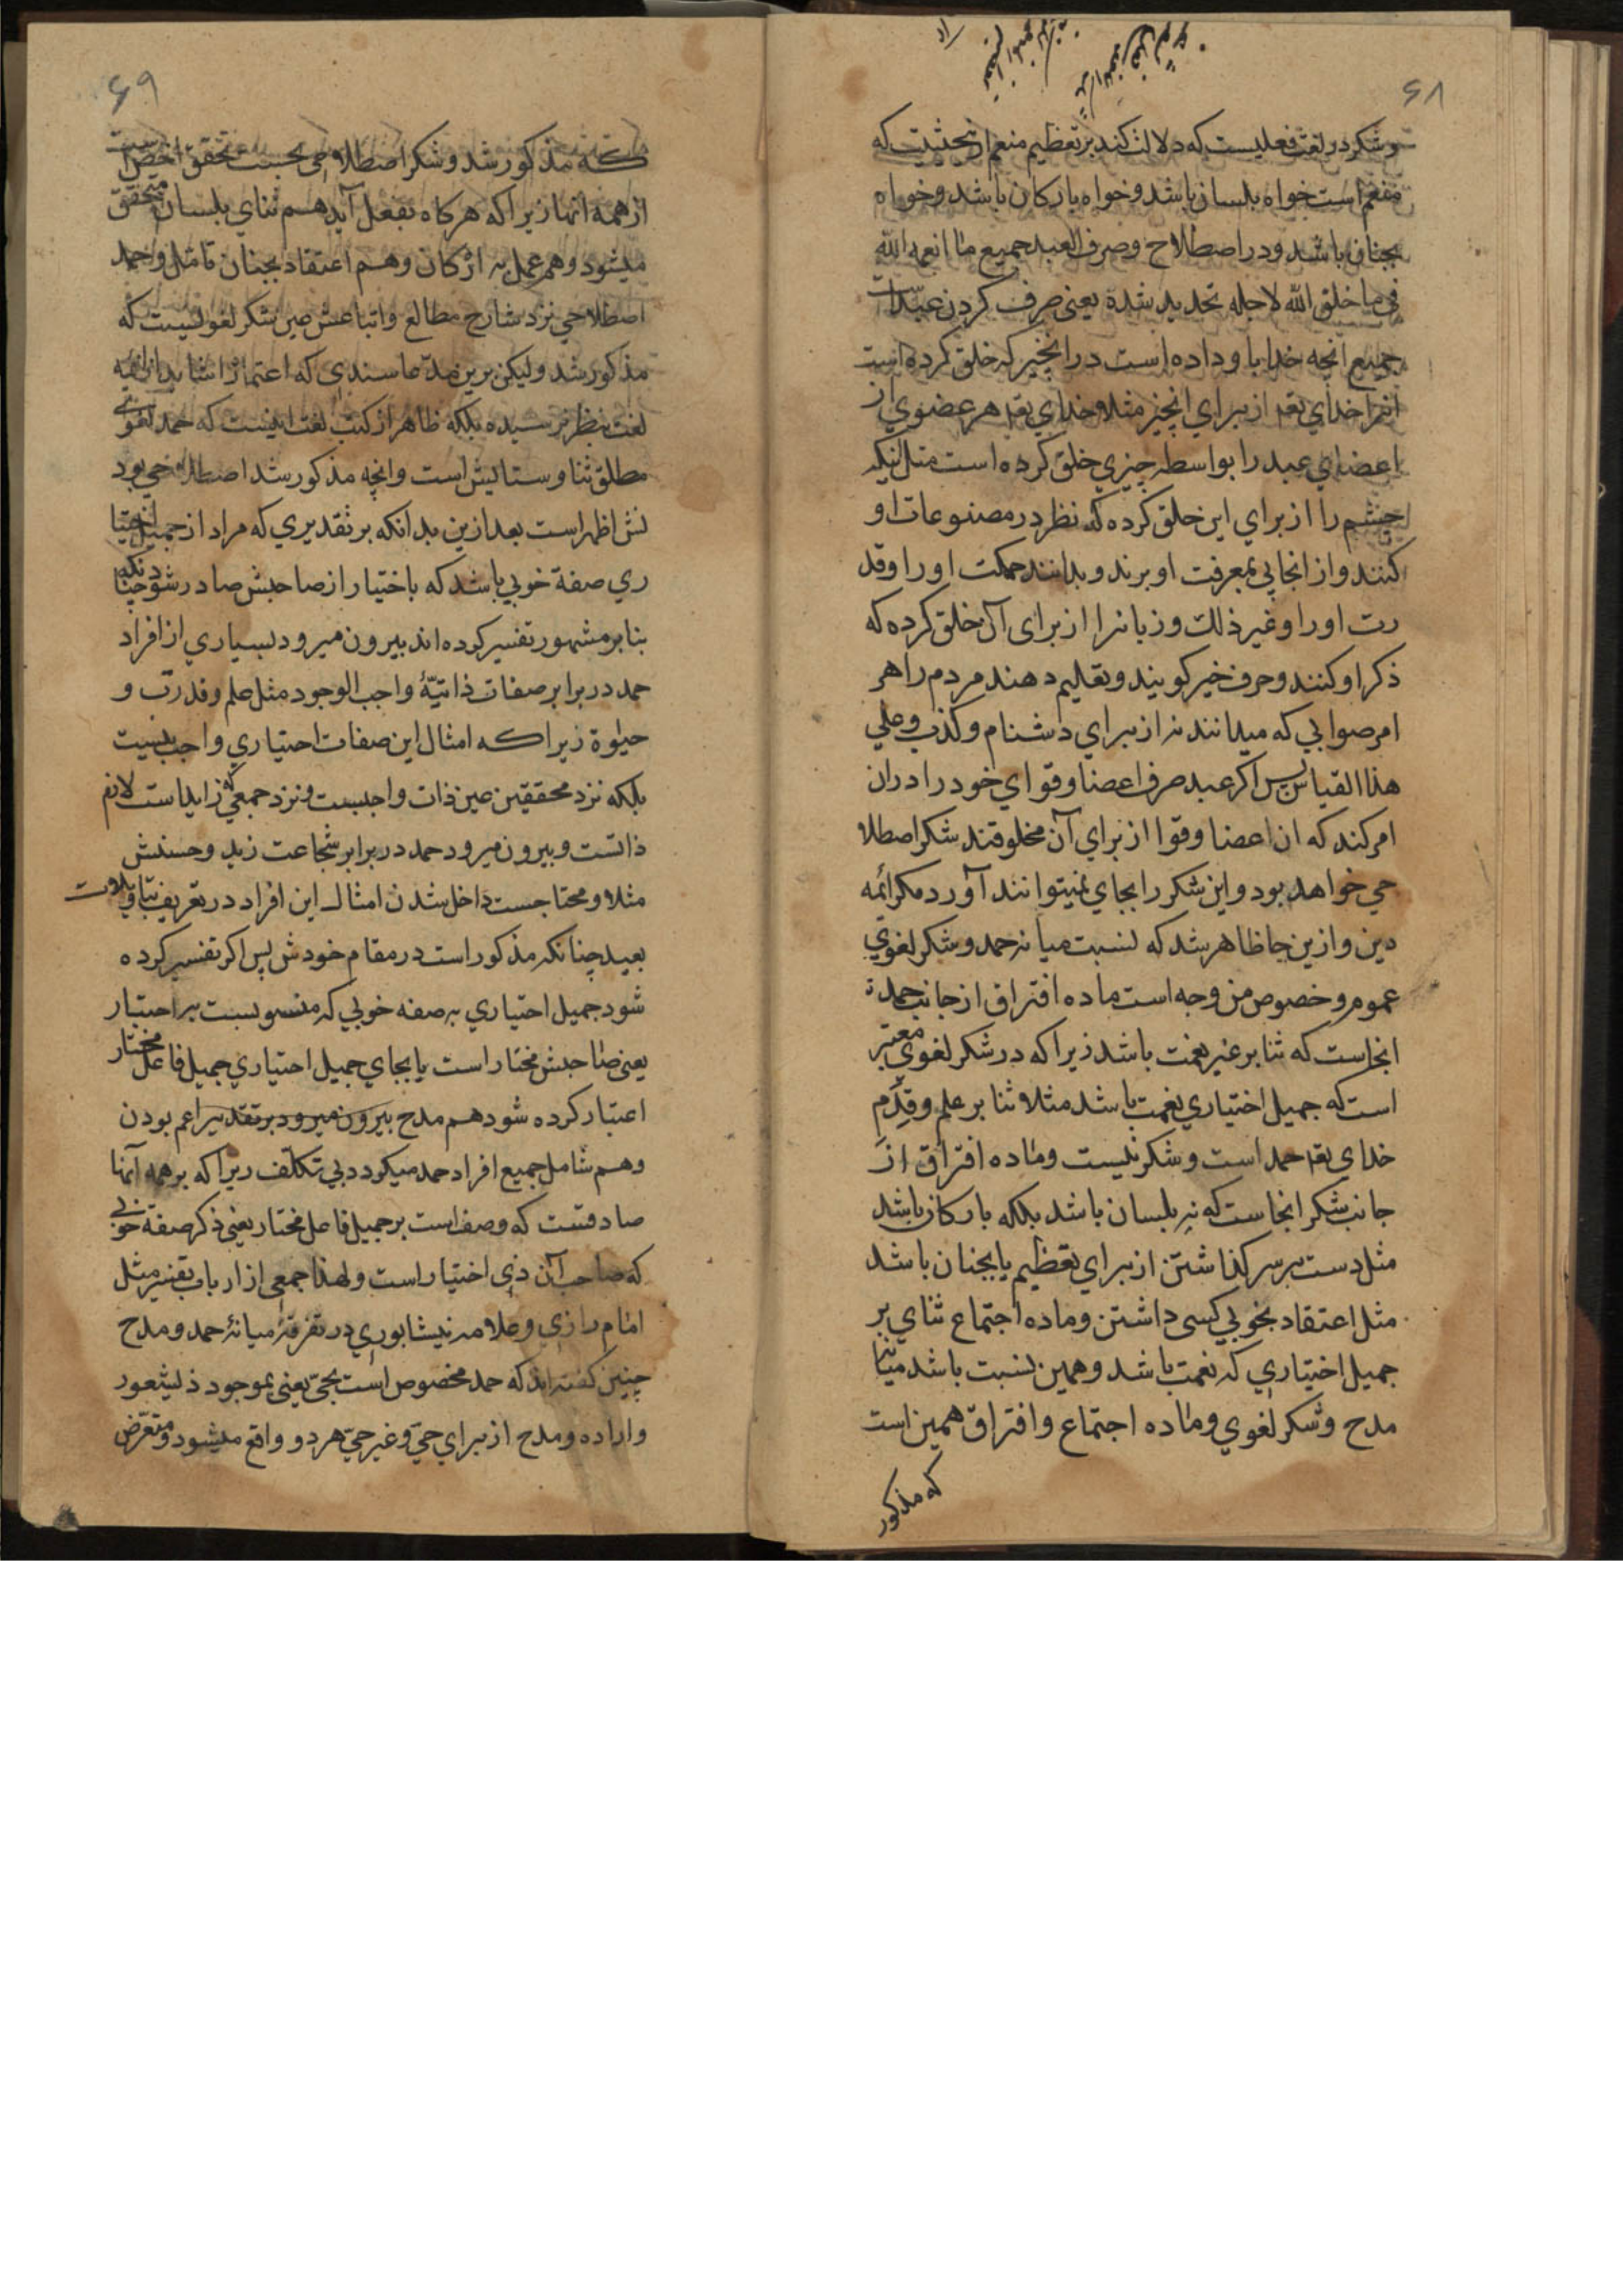 ۶۸
وشکر در لغت فعلیست که دلالت کند بر تعظیم منعم از حیثیت که
منعم است خواه بلسان باشد وخواه بارکان باشد وخواه
بجنان باشد ودر اصطلاح وصرف العبد جمیع ما انعمه الله
فی ما خلق الله لاجله تحدید شده یعنی صرف کردن عبد است
جمیع آنچه خدا باو داده است در انچیز که خلق کرده است
انرا خدای تعه از برای انچیز مثلا خدای تعه هر عضوی از
اعضای عبد را بواسطه چیزی خلق کرده است مثل انیکه
چشم را از برای این خلق کرده که نظر در مصنوعات او
کنند واز انجا پی بمعرفت او برند وبدانند حکمت او را وقد
رت او را وغیر ذلک وزبانرا از برای آن خلق کرده که
ذکر او کنند وحرف خیر کویند وتعلیم دهند مردم را هر
امر صوابی که میدانند نه از برای دشنام وکذب وعلی
هذا القیاس پس اکر عبد صرف اعضا وقوای خود را دران
امر کند که ان اعضا وقوا از برای آن مخلوقند شکر اصطلا
حی خواهد بود واین شکر را بجای نمیتوانند آورد مکر ائمه
دین وازین جا ظاهر شد که نسبت میانه حمد وشکر لغوی
عموم وخصوص من وجه است ماده افتراق از جانب حمد
انجاست که ثنا بر غیر نعمت باشد زیرا که در شکر لغوی معتبر
است که جمیل اختیاری نعمت باشد مثلا ثنا بر علم وقدم
خدای تعه حمد است وشکر نیست وماده افتراق از
جانب شکر انجاست که نه بلسان باشد بلکه بارکان باشد
مثل دست بر سر کذاشتن از برای تعظیم یا بجنان باشد
مثل اعتقاد بخوبی کسی داشتن وماده اجتماع ثنای بر
جمیل اختیاری که نعمت باشد وهمین نسبت باشد میانه
مدح وشکر لغوی وماده اجتماع وافتراق همین است
که مذکور
۶۹
که مذکور شد وشکر اصطلاحی بحسب تحقق اخص است
از همه انها زیرا که هرکاه بفعل آید هم ثنای بلسان متحقق
میشود وهم عمل به ارکان وهم اعتقاد بجنان تامل وحمد
اصطلاحی نزد شارح مطالع واتباعش عین شکر لغویست که
مذکور شد ولیکن برین مدعا سندی که اعتماد را شاید از ائمه
لغت بنظر نرسیده بلکه ظاهر از کتب لغت اینست که حمد لغوی
مطلق ثنا وستایش است وانچه مذکور شد اصطلاحی بود
نش اظهر است بعد ازین بدانکه بر تقدیری که مراد از جمیل اختیا
ری صفة خوبی باشد که باختیار از صاحبش صادر شود چنانکه
بنا بر مشهور تفسیر کرده اند بیرون میرود بسیاری از افراد
حمد در برابر صفات ذاتیهٔ واجب الوجود مثل علم وقدرت و
حیوة زیرا که امثال این صفات اختیاری واجب نیست
بلکه نزد محققین عین ذات واجبست ونزد جمعی که زایداست لازم
ذاتست وبیرون میرود حمد در برابر شجاعت زید وحسنش
مثلا ومحتاجست داخل شدن امثال این افراد در تعریف بتاویلات
بعید چنانکه مذکور است در مقام خودش پس اکر تفسیر کرده
شود جمیل اختیاری به صفه خوبی که منسوبست به اختیار
یعنی صاحبش مختار است یا بجای جمیل اختیاری جمیل فاعل مختار
اعتبار کرده شود هم مدح بیرون میرود بر تقدیر اعم بودن
وهم شامل جمیع افراد حمد میکردد بی تکلف زیرا که بر همه آنها
صادقست که وصف است بر جمیل فاعل مختار یعنی ذکر صفة خوبی
که صاحب آن ذی اختیار است ولهذا جمعی از ارباب تفسیر مثل
امام رازی وعلامه نیشابوری در تفرقهٔ میانهٔ حمد ومدح
چنین کفته اند که حمد مخصوص است بحی یعنی بموجود ذیشعور
واراده ومدح از برای حی وغیر حی هر دو واقع میشود ومتعرض